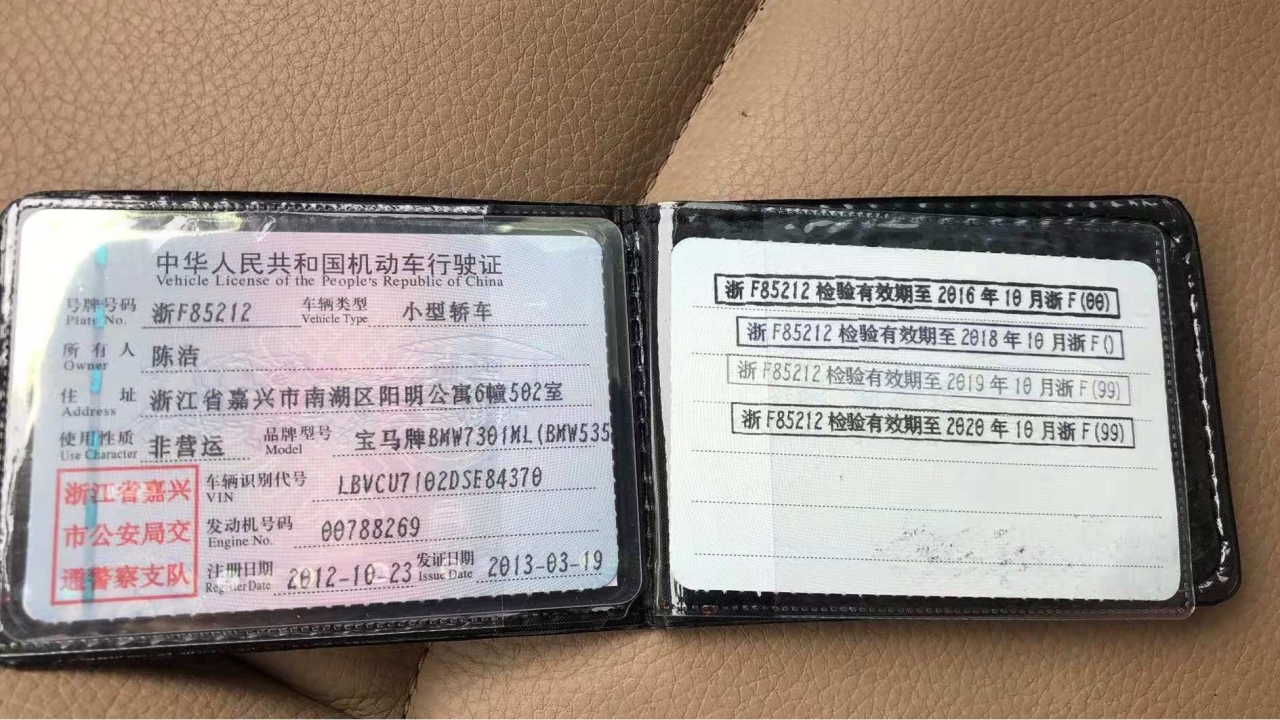 中华人民共和国机动车行驶证
Vehicle License of the People's Republic of China
号牌号码 浙F85212 车辆类型 小型轿车
Plate No. Vehicle Type
所有人 陈洁
Owner
住址 浙江省嘉兴市南湖区阳明公寓6幢502室
Address
使用性质 非营运 品牌型号 宝马牌BMW7301ML(BMW535
Use Character Model
浙江省嘉兴
市公安局交
通警察支队
车辆识别代号 LBVCU7102DSE84370
VIN
发动机号码 00788269
Engine No.
注册日期 2012-10-23 发证日期 2013-03-19
Register Date Issue Date
浙 F85212 检验有效期至 2016 年 10 月浙 F(00)
浙 F85212 检验有效期至 2018 年 10 月浙 F()
浙 F85212 检验有效期至 2019 年 10 月浙 F(99)
浙 F85212 检验有效期至 2020 年 10 月浙 F(99)